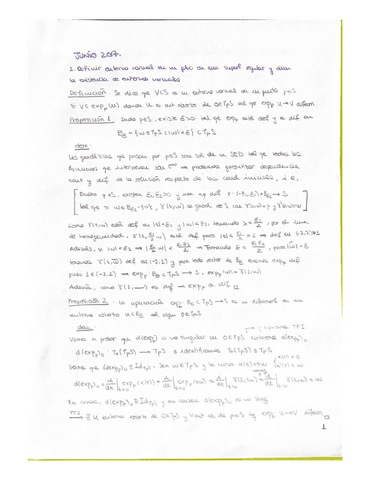 JUNIO 2007.
1. Definir entorno normal en un pto de una superf. regular y dem
la existencia de entornos normales
Definición: Se dice que V⊂S es un entorno normal de un punto p∈S
si V = exp_p(U) donde U es ent abierto de 0∈TpS tal que exp_p: U→V difeom
Proposición 1 Dado p∈S, existe ε>0 tal que exp_p está def y es dif en
B_ε = {w∈TpS : |w|<ε} ⊂ TpS
dem:
Las geodésicas que pasan por p∈S son sol de un SED tal que todas las
funciones que intervienen son C^∞ → podemos garantizar dependencia
cont y dif de la solución respecto de las cond iniciales, i.e,
Dado p∈S, existen ε1, ε2>0 y una ap. dif γ: (-ε1, ε1)×B_ε2 → S
tal que
Como γ(t,w) está def en |t|<ε1 y |w|<ε2, tomando λ = ε1/2, por el lema
de homogeneidad, γ(t, ε1/2 w) está def para
Además, si |w|<ε2 → → Tomando ε = ε1ε2/2, para |w|<ε
tenemos γ(t,w) def en (-2,2) y para todo vector de B_ε tiene exp_p def
pues 1∈(-2,2) → exp_p: B_ε⊂TpS→S, exp_p(w)=γ(1,w)
Además, como γ(1, ) es dif → exp_p es dif
Proposición 2 - La aplicación exp_p: B_ε⊂TpS→S es un difeomorf en un
entorno abierto U⊂B_ε del origen 0∈TpS
dem:
Vamos a probar que d(exp_p)_0 es no singular en 0∈TpS y aplicamos TFI
d(exp_p)_0 : T_0(TpS) → TpS e identificamos T_0(TpS) ≅ TpS
Veamos que d(exp_p)_0 ≡ Id_TpS. Sea w∈TpS y la curva α(t)=tw, α(0)=0 α'(0)=w
d(exp_p)_0 w = d/dt|t=0 exp_p(α(t)) = d/dt|t=0 exp_p(tw) = d/dt|t=0 γ(1,tw) = d/dt|t=0 γ(t,w) = w
En conc, d(exp_p)_0 ≡ Id_TpS y en concr d(exp_p)_0 es no sing
TFI → ∃ U entorno abierto de 0∈TpS y V ent ab de p∈S tq exp_p: U→V difeom
1